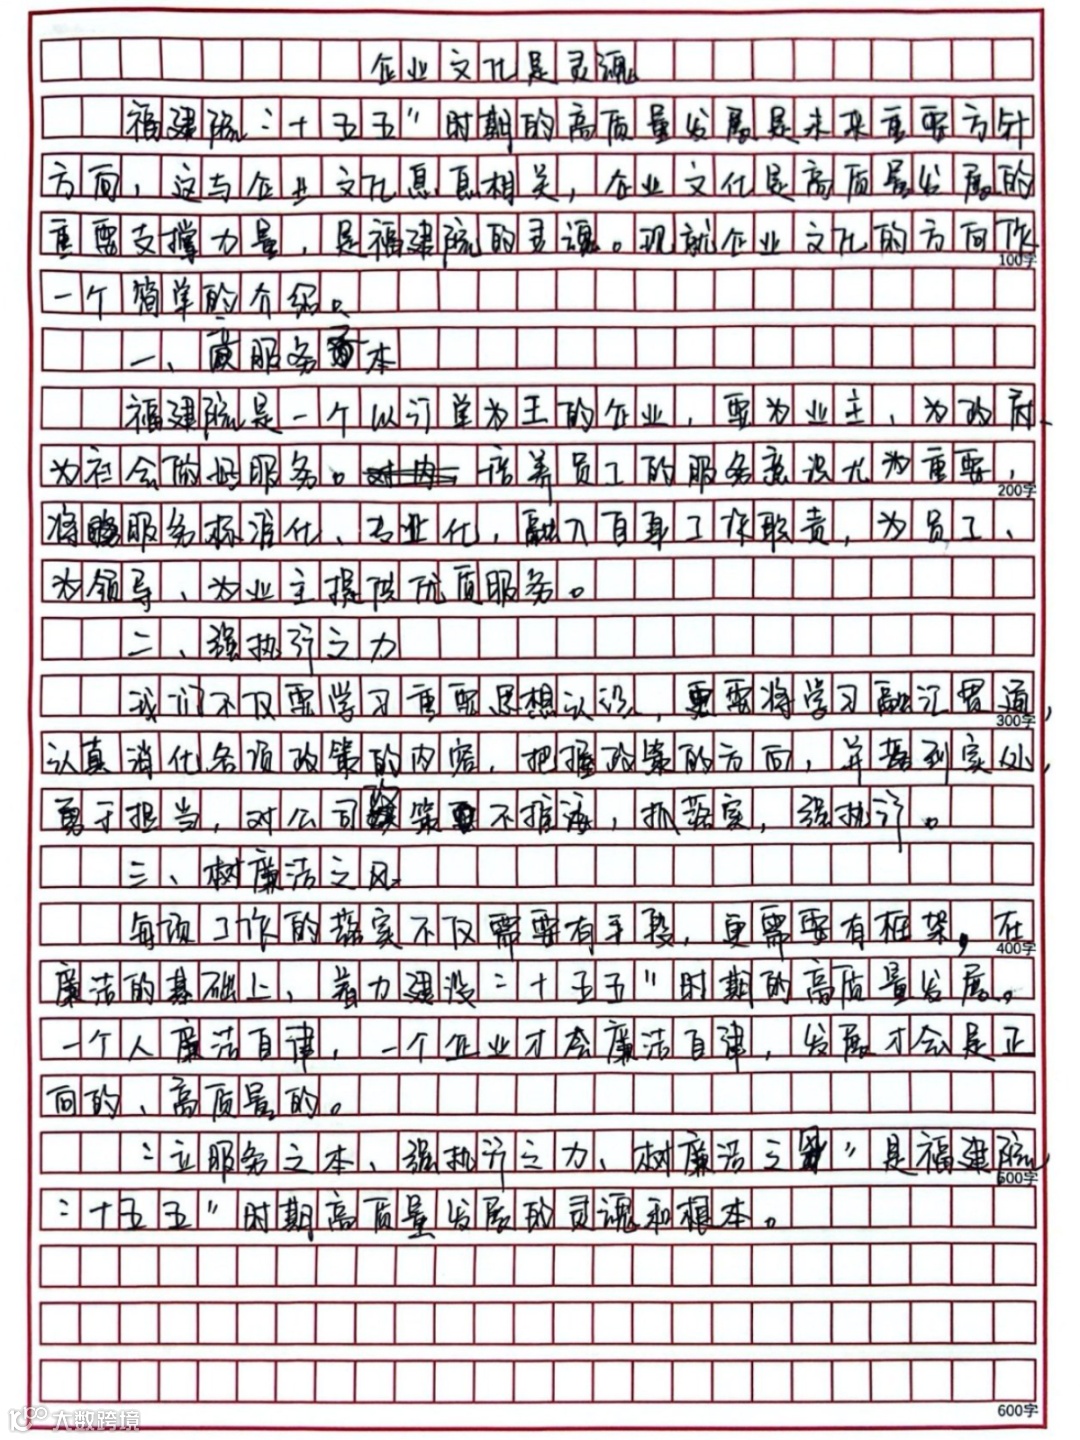 企业文化是灵魂
福建院“十五五”时期的高质量发展是未来重要方针
方向，这与企业文化息息相关，企业文化是高质量发展的
重要支撑力量，是福建院的灵魂。现就企业文化的方向作
一个简单的介绍。
一、服务本
福建院是一个以订单为王的企业，要为业主、为政府、
为社会做好服务。培养员工的服务意识尤为重要，
将服务标准化、专业化，融入自身工作职责，为员工、
为领导、为业主提供优质服务。
二、强执行之力
我们不仅需学习重要思想认识，更要将学习融汇贯通，
认真消化各项政策的内容，把握政策的方向，并落到实处，
勇于担当，对公司政策不推诿，抓落实，强执行。
三、树廉洁之风
每项工作的落实不仅需要有手段，更需要有框架，在
廉洁的基础上，着力建设“十五五”时期的高质量发展。
一个人廉洁自律，一个企业才会廉洁自律，发展才会是正
向的、高质量的。
“立服务之本、强执行之力、树廉洁之风”是福建院
“十五五”时期高质量发展的灵魂和根本。
100字
200字
300字
400字
500字
600字
大数跨境